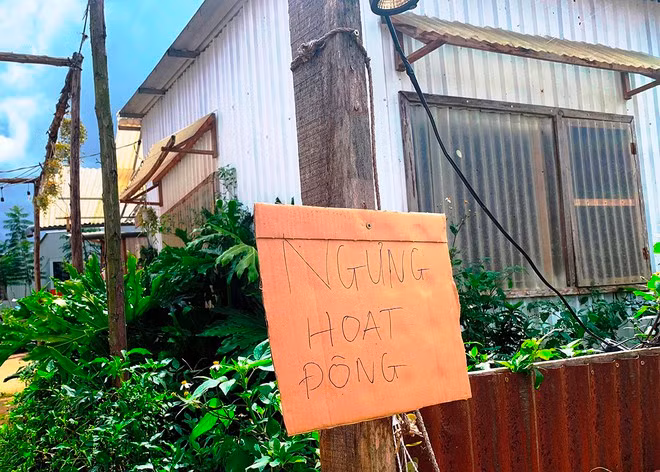 NGƯNG
HOẠT
ĐỘNG